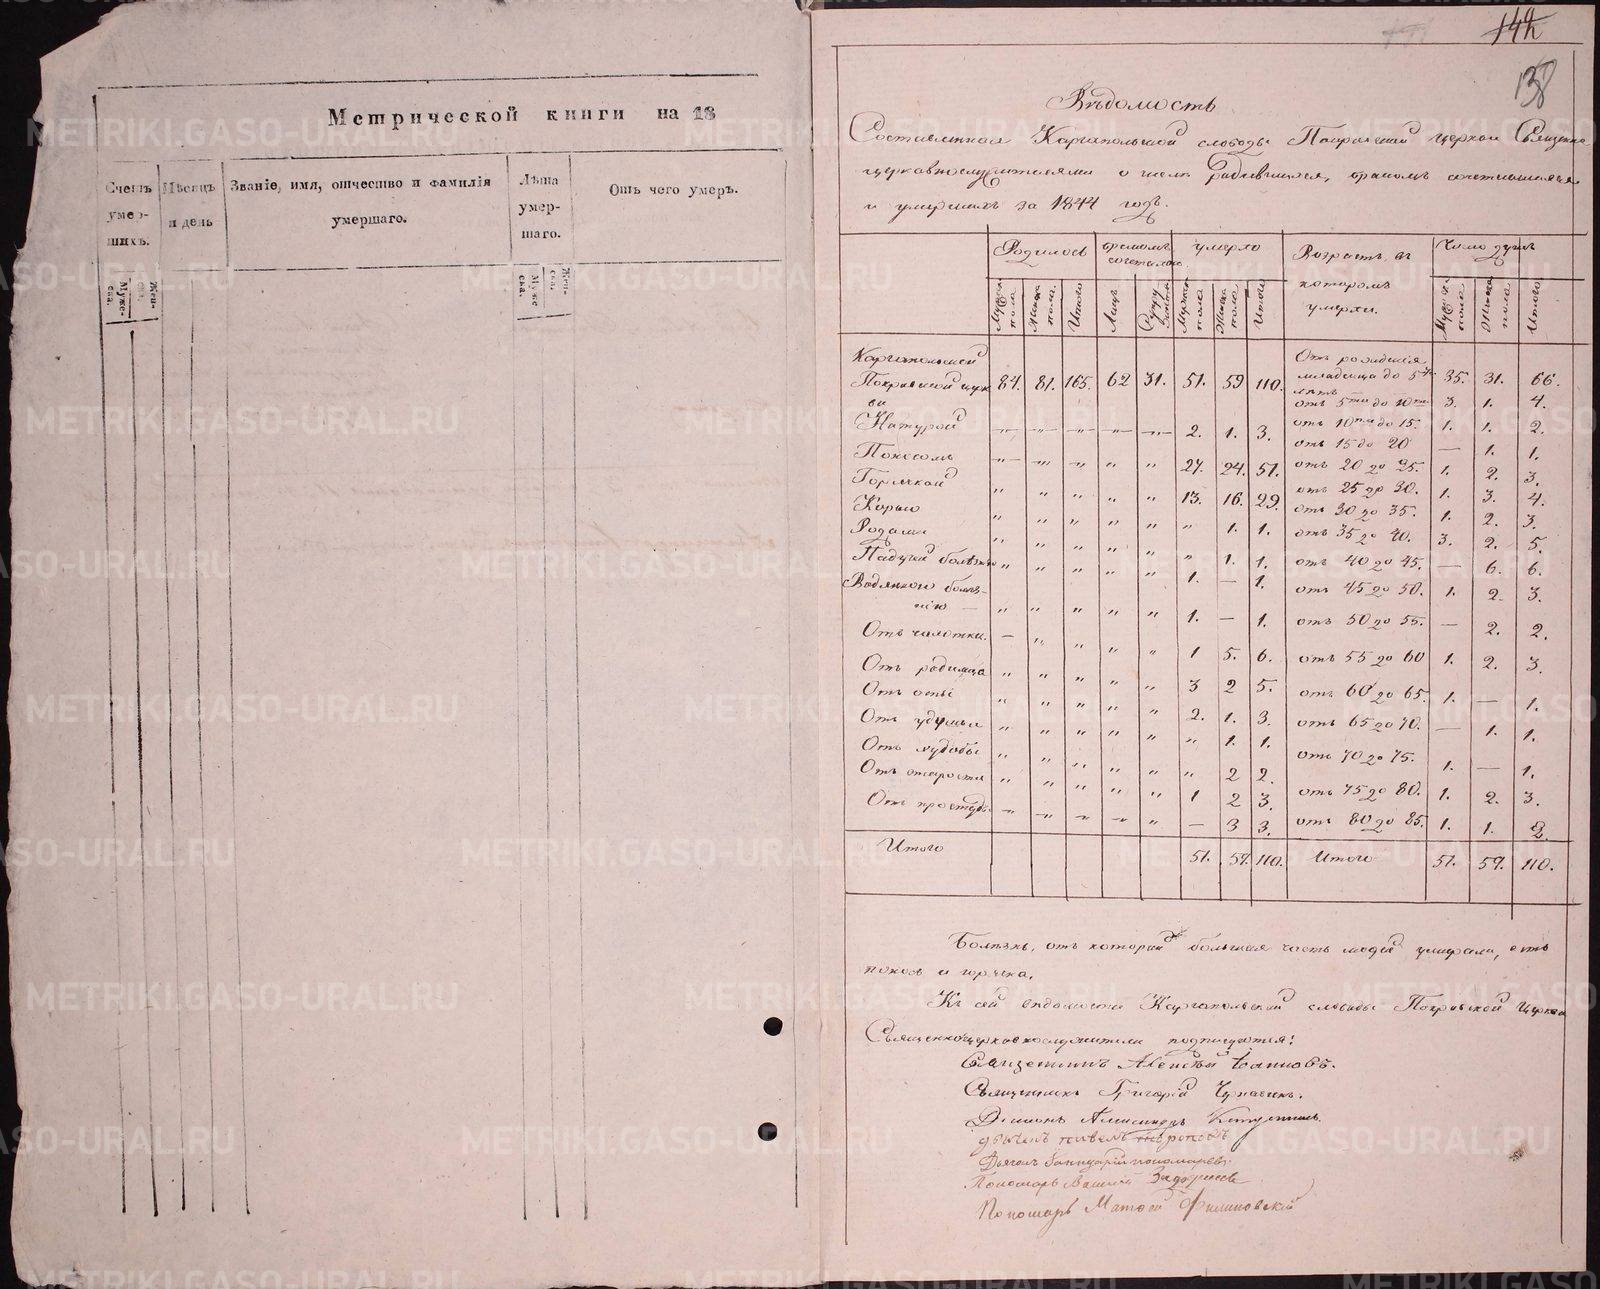 Метрической книги на 18
Счетъ умер- шихъ.
Мѣсяцъ и день
Званіе, имя, отчество и фамилія умершаго.
Лѣта умер- шаго.
Отъ чего умеръ.
Муже- ска.
Жен- ска.
Муже- ска.
Жен- ска.
142
138
Вѣдомость
Составленная Каргапольской слободы Покровской церкви Священно
церковнослужителями о числѣ родившихся, бракомъ сочетавшихся
и умершихъ за 1844 годъ.
Родилось бракомъ сочеталось умерло Возрастъ въ которомъ умерли. Число душъ
Мужска пола. Женска пола. Итого Лицъ Супру Мужска пола. Женска пола. Итого Мужска пола Женска пола Итого
Каргапольской Отъ рожденія
Покровской церк 84. 81. 165. 62 31. 51. 59 110. младенца до 5ти 35. 31. 66.
ви лѣтъ
отъ 5ти до 10ти 3. 1. 4.
Натурой — „ — „ — 2. 1. 3. отъ 10ти до 15. 1. 1. 2.
отъ 15 до 20 — 1. 1.
Поносомъ „ „ „ „ „ 27. 24. 51. отъ 20 до 25. 1. 2. 3.
Горячкой „ „ „ „ „ 13. 16. 29. отъ 25 до 30. 1. 3. 4.
Корью „ „ „ „ „ „ 1. 1. отъ 30 до 35. 1. 2. 3.
Родами „ „ „ „ „ „ 1. 1. отъ 35 до 40. 3. 2. 5.
Падучей болѣзнью „ „ „ „ „ 1. — 1. отъ 40 до 45. — 6. 6.
Водяною болѣз- отъ 45 до 50. 1. 2. 3.
нію — „ „ „ „ „ 1. — 1. отъ 50 до 55. — 2. 2.
Отъ чахотки. — „ „ „ „ 1 5. 6. отъ 55 до 60 1. 2. 3.
Отъ родимца „ „ „ „ „ 3 2 5. отъ 60 до 65. 1. — 1.
Отъ оспы „ „ „ „ „ 2. 1. 3. отъ 65 до 70. — 1. 1.
Отъ удушья „ „ „ „ „ „ 1. 1. отъ 70 до 75. 1. — 1.
Отъ худобы „ „ „ „ „ „ 2 2. отъ 75 до 80. 1. 2. 3.
Отъ старости „ „ „ „ „ 1 2 3. отъ 80 до 85. 1. 1. 2.
Отъ простуды „ „ „ „ „ — 3 3.
Итого 51. 59. 110. Итого 51. 59. 110.
Болѣзнь, отъ которой большая часть людей умирали, есть
поносъ и горячка.
Къ сей вѣдомости Каргапольской слободы Покровской Церкви
Священноцерковнослужители подписуются:
Священникъ Алексѣй Іоанновъ.
Священникъ Григорій
Діаконъ Александръ
дьячекъ павелъ
Дьячекъ пономаревъ.
Пономарь Василій
Пономарь Матѳей Филиновскій
METRIKI.GASO-URAL.RU